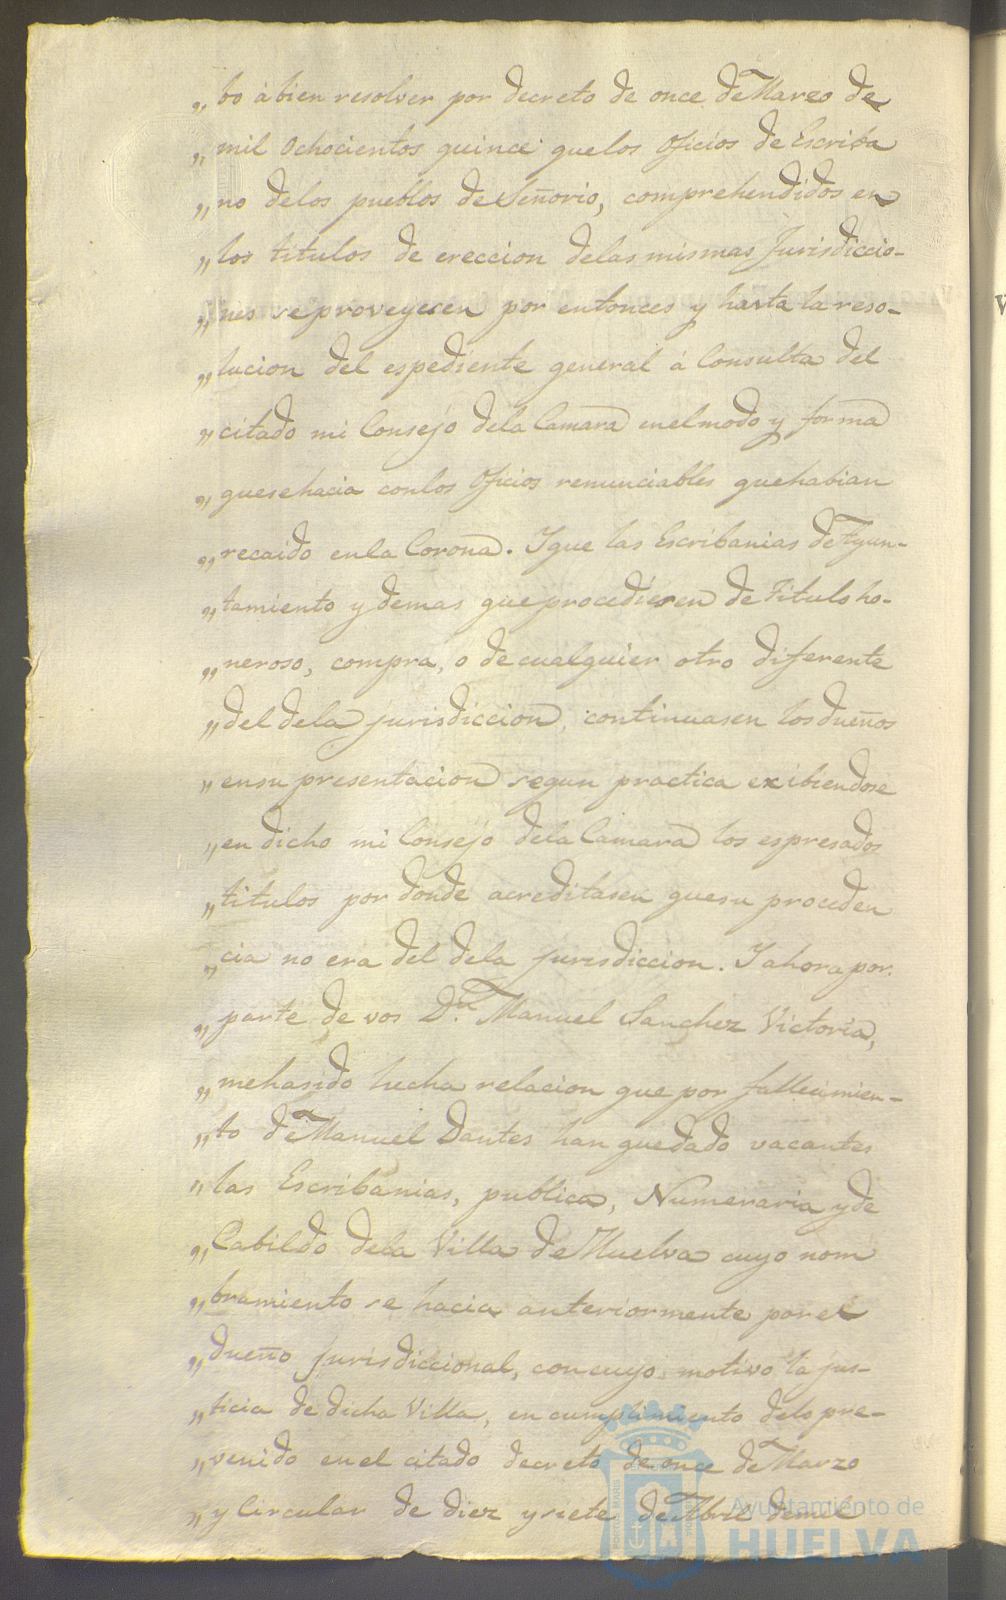 „bo á bien resolver por decreto de once de Marzo de
„mil Ochocientos quince que los Oficios de Escriba
„no de los pueblos de Señorio, comprehendidos en
„los titulos de ereccion de las mismas Jurisdiccio-
„nes se proveyesen por entonces y hasta la reso-
„lucion del espediente general á Consulta del
„citado mi Consejo de la Camara en el modo y forma
„que se hacia con los Oficios renunciables que habian
„recaido en la Corona. Y que las Escribanias de Ayun-
„tamiento y demas que procediesen de Titulo ho-
„neroso, compra, o de cualquier otro diferente
„del de la jurisdiccion, continuasen los dueños
„en su presentacion segun practica exibiendose
„en dicho mi Consejo de la Camara los espresados
„titulos por donde acreditasen que su proceden
„cia no era del de la jurisdiccion. Y ahora por
„parte de vos D.n Manuel Sanchez Victoria,
„me ha sido hecha relacion que por fallecimien-
„to de Manuel Dantes han quedado vacantes
„las Escribanias, publica, Numeraria y de
„Cabildo de la Villa de Huelva cuyo nom
„bramiento se hacia anteriormente por el
„dueño jurisdiccional, con cuyo motivo la jus-
„ticia de dicha Villa, en cumplimiento de lo pre-
„venido en el citado decreto de once de Marzo
„y Circular de diez y siete de Abril de mil
Ayuntamiento de
HUELVA